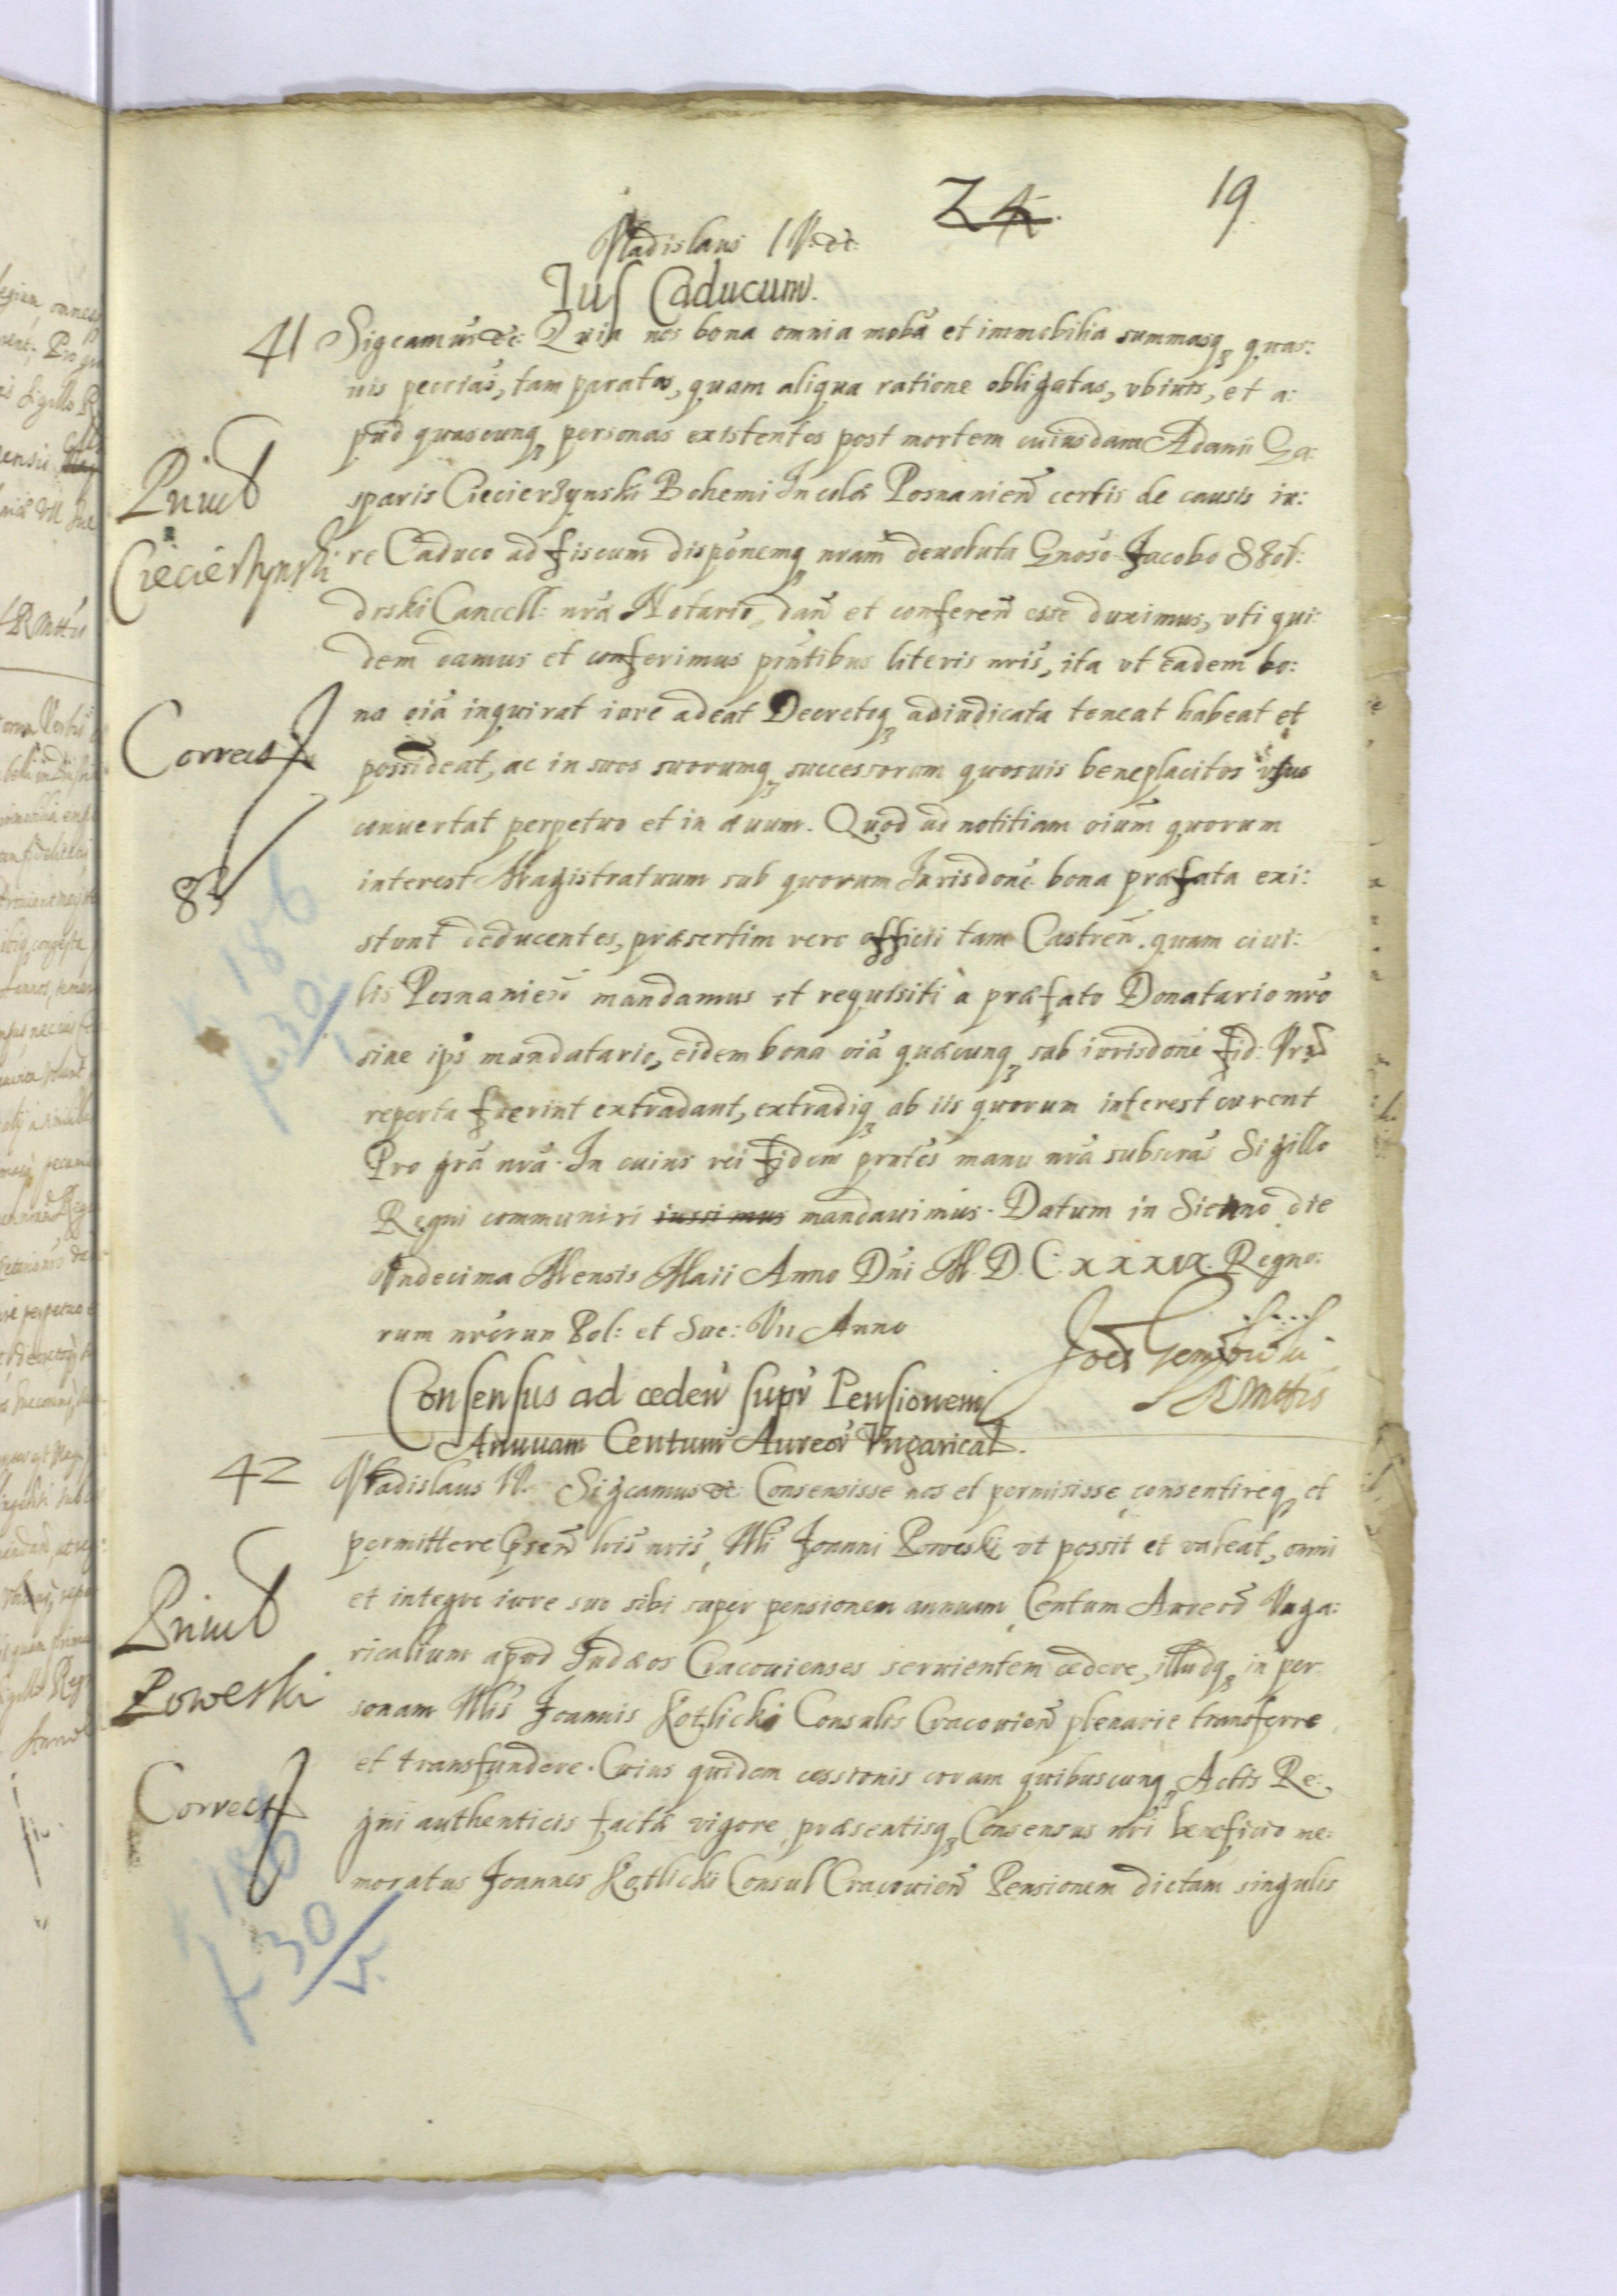 24. 19
Vladislaus IV. etc:
Ius Caducum.
41 Sigcamus etc: Quia nos bona omnia mobã et immobilia summasq3 quas:
uis pecrias, tam paratas, quam aliqua ratione obligatas, vbiuis, et a:
pud quascunq3 personas existentes post mortem cuiusdam Adami Ga:
sparis Ciecierzynski Bohemi Incolæ Posnanień certis de causis iu:
re Caduco ad fiscum disponemq3 nram deuoluta Gnoso Jacobo
drski Cancell: nræ Notario, dań et confereń esse duximus, vti qui:
dem damus et conferimus pntibus literis nris, ita vt eadem bo:
na oiã inquirat iure adeat Decretoq3 adiudicata teneat habeat et
possideat, ac in suos suorumq3 successorum quosuis beneplacitos vsus
conuertat perpetuo et in æuum. Quod ad notitiam oium quorum
interest Magistratuum sub quorum Jurisdone bona præfata exi:
stunt deducentes, præsertim vero officii tam Castreń. quam ciui:
lis Posnanień mandamus vt requisiti à præfato Donatario nro
siue ips mandatario, eidem bona oiã quæcunq3 sub iurisdone Fid: Vrã
reperta fuerint extradant, extradiq3 ab iis quorum interest curent
Pro grã nrã. In cuius rei fidem pntes manu nrã subscras Sigillo
Regni communiri iussimus mandauimus. Datum in Sienno die
Vndecima Mensis Maii Anno Dni M. D. C. xxxix. Regno:
rum nrorun Pol: et Sue: VII Anno
Priuil
Ciecierzynski
Correct
83
186
30
Joes Gembicki
SRMttis
Consensus ad cedeń supr Pensionem
Annuam Centum Aureor Vngarical.
42 Vladislaus IV. Sigcamus etc: Consensisse nos et permisisse consentireq3 et
permittere Psen lris nris, Nli Joanni Poweski vt possit et valeat, omni
et integro iure suo sibi super pensionem annuam Centum Aureor Vnga:
ricalium apud Judæos Cracouienses seruientem cedere, illudq3 in per
sonam Nlis Joannis Kotlicki Consulis Cracouień plenarie transferre
et transfundere. Cuius quidem cessionis coram quibuscunq3 Actis Re:
gni authenticis factæ vigore, præsentisq3 Consensus nri beneficio me:
moratus Joannes Kotlicki Consul Cracouień Pensionem dictam singulis
Priuil
Poweski
Correct
186
30
v.